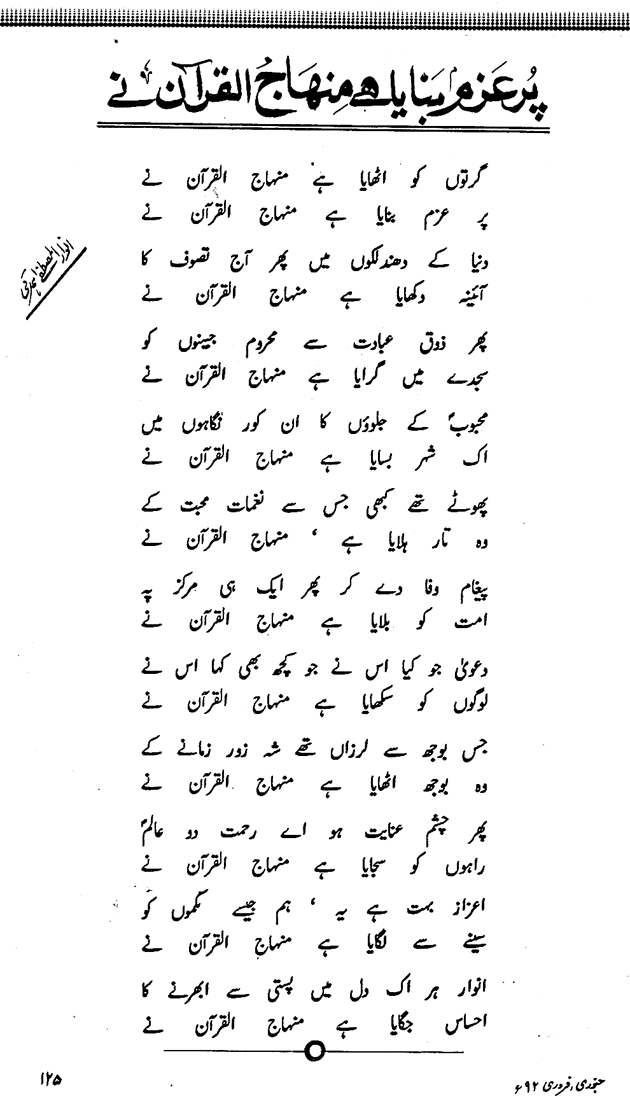 پُر عَزم بَنایا ہے مِنہَاجُ القرآن نے
انوار المصطفےٰ ہمدمی
گرتوں کو اٹھایا ہے منہاج القرآن نے
پر عزم بنایا ہے منہاج القرآن نے
دنیا کے دھندلکوں میں پھر آج تصوف کا
آئینہ دکھایا ہے منہاج القرآن نے
پھر ذوق عبادت سے محروم جبینوں کو
سجدے میں گرایا ہے منہاج القرآن نے
محبوبؐ کے جلوؤں کا ان کور نگاہوں میں
اک شہر بسایا ہے منہاج القرآن نے
پھوٹے تھے کبھی جس سے نغمات محبت کے
وہ تار ہلایا ہے ‘ منہاج القرآن نے
پیغام وفا دے کر پھر ایک ہی مرکز پہ
امت کو بلایا ہے منہاج القرآن نے
دعویٰ جو کیا اس نے جو کچھ بھی کہا اس نے
لوگوں کو سکھایا ہے منہاج القرآن نے
جس بوجھ سے لرزاں تھے شہ زور زمانے کے
وہ بوجھ اٹھایا ہے منہاج القرآن نے
پھر چشم عنایت ہو اے رحمت دو عالمؐ
راہوں کو سجایا ہے منہاج القرآن نے
اعزاز بہت ہے یہ ‘ ہم جیسے نکموں کو
سینے سے لگایا ہے منہاج القرآن نے
انوار ہر اک دل میں پستی سے ابھرنے کا
احساس جگایا ہے منہاج القرآن نے
جنوری، فروری ۹۲ء
۱۲۵